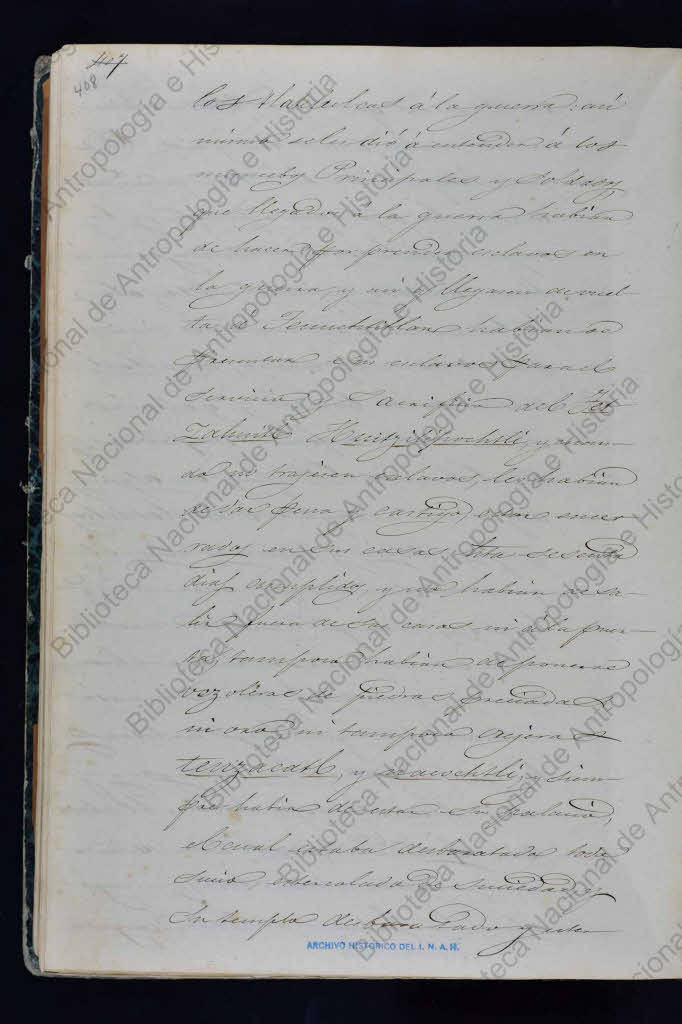 407
408
los tlatelulcas á la guerra: así
mismo se les dió á entender á los
Principales y Soldados
que llegados á la guerra habían
de hacer y prender esclavos en
la guerra, y así q. llegasen de vuel-
ta á Tenuchtitlan habían de
presentar sus esclavos para el
servicio y sacrificio del Tet-
zahuitl Huitzilopochtli, y cuan-
do no trajesen esclavos, les habían
de dar pena y castigo, estar encer-
rados en sus casas hta. sesenta
dias cumplidos, y no habían de sa-
lir fuera de sus casas ni á la puer-
ta, tampoco habían de ponerse
vezoleras de piedras preciadas
ni oro, ni tampoco orejeras
tenzacatl, y nacochtli, y siem-
pre había de estar su palacio,
el cual estaba desbaratado todo
sucio, estercolado de suciedad, y
su templo desbaratado y ester-
ARCHIVO HISTORICO DEL I. N. A. H.
Biblioteca Nacional de Antropología e Historia